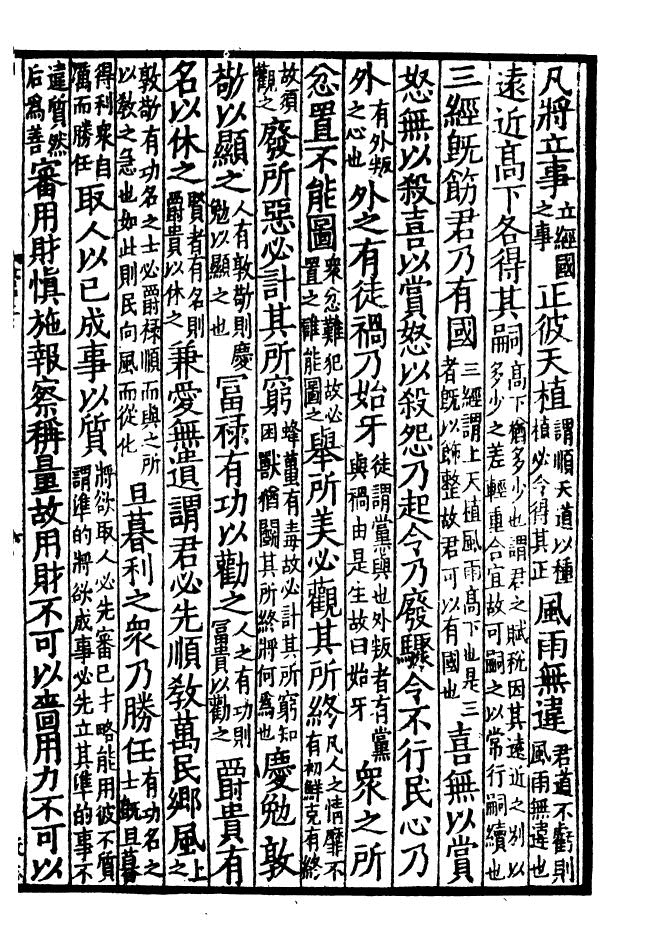 凡將立事立經國之事正彼天植謂順天道以種植必令得其正風雨無違君道不虧則風雨無違也
遠近髙下各得其嗣髙下猶多少也謂君之賦稅因其遠近之別以多少之差輕重合宜故可嗣之以常行嗣續也
三經旣飭君乃有國三經謂上天植風雨髙下也是三者旣以飾整故君可以有國也喜無以賞
怒無以殺喜以賞怒以殺怨乃起令乃廢驟令不行民心乃
外有外叛之心也外之有徒禍乃始牙徒謂黨與也外叛者有黨與禍由是生故曰始牙衆之所
忿置不能圖衆忿難犯故必置之雖能圖之舉所美必觀其所終凡人之情靡不有初鮮克有終
故須觀之廢所惡必計其所窮蜂蠆有毒故必計其所窮知困獸猶鬭其所終將何爲也慶勉敦
敬以顯之人有敦敬則慶勉以顯之也冨祿有功以勸之人之有功則冨貴以勸之爵貴有
名以休之賢者有名則爵貴以休之兼愛無遺謂君必先順教萬民鄉風上之
敦敬有功名之士必爵祿順而與之所以教之急也如此則民向風而從化旦暮利之衆乃勝任有功名之士旣旦暮
得利衆自厲而勝任取人以己成事以質將欲取人必先審己才略能用彼不質謂準的將欲成事必先立其準的事不
違質然后爲善審用財慎施報察稱量故用財不可以嗇用力不可以